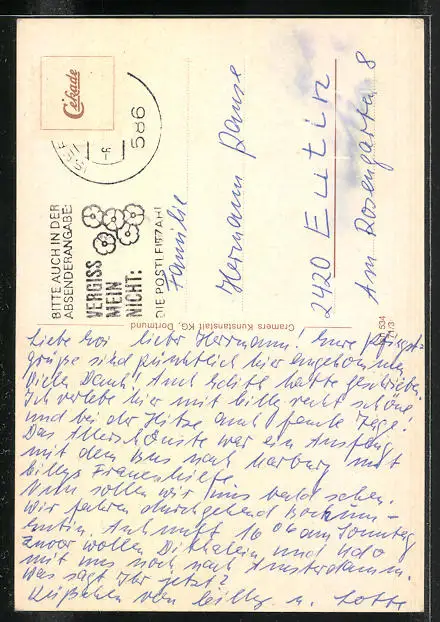 Cekade
586
BITTE AUCH IN DER
ABSENDERANGABE:
VERGISS
MEIN
NICHT:
DIE POSTLEITZAHL
Familie
Hermann
2420 Eutin
Am Rosengarten 8
Cramers Kunstanstalt KG, Dortmund
Liebe lieber Herrmann! Eure
grüße sind pünktlich hier angekommen
Vielen Dank! Auch Edith hatte geschrieben
Ich verlebe hier mit Lilly recht schöne
und bei der Hitze auch faule Tage!
Das Allerschönste war ein Ausflug
mit dem Bus nach Marburg mit
Lillys Frauenhilfe.
Nun sollen wir uns bald sehen.
Wir fahren durchgehend Bochum-
Eutin. Ankunft 16 06 am Sonntag
zuvor wollen und Udo
mit uns noch nach Amsterdam.
Was sagt Ihr jetzt?
Küßchen von Lilly u. Lotte